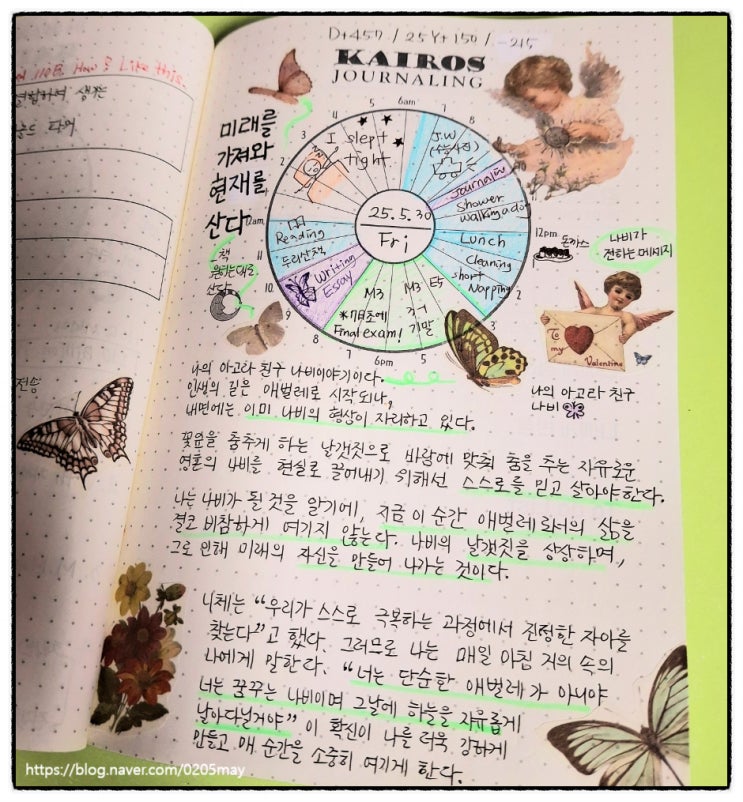 D+457 / 25Y+150 / -215
KAIROS
JOURNALING
How I Like this.
미래를
가져와
현재를
산다
책
산다
5
6am
7
8
4
3
2
12am
11
10
9
8
7
6pm
5
3
2
12pm
I slept
tight
J.W
Journaling
Shower
walking a dog
Lunch
Cleaning
short
Napping
E5
M3
기말
M3
*7月초에
Final exam!
Writing
Essay
두리산책
Reading
25.5.30
Fri
돈까스
나비가
전하는 메세지
To
my
Valentine
나의 아고라 친구
나비
나의 아고라 친구 나비이야기이다.
인생의 길은 애벌레로 시작되나,
내면에는 이미 나비의 형상이 자리하고 있다.
꽃잎을 춤추게 하는 날갯짓으로 바람에 맞춰 춤을 추는 자유로운
영혼의 나비를 현실로 끌어내기 위해선 스스로를 믿고 살아야한다.
나는 나비가 될 것을 알기에, 지금 이 순간 애벌레로서의 삶을
결코 비참하게 여기지 않는다. 나비의 날갯짓을 상상하며,
그로 인해 미래의 자신을 만들어 나가는 것이다.
니체는 "우리가 스스로 극복하는 과정에서 진정한 자아를
찾는다"고 했다. 그러므로 나는 매일 아침 거울 속의
나에게 말한다. "너는 단순한 애벌레가 아니야
너는 꿈꾸는 나비이며 그날에 하늘을 자유롭게
날아다닐거야" 이 확신이 나를 더욱 강하게
만들고 매 순간을 소중히 여기게 한다.
https://blog.naver.com/0205may